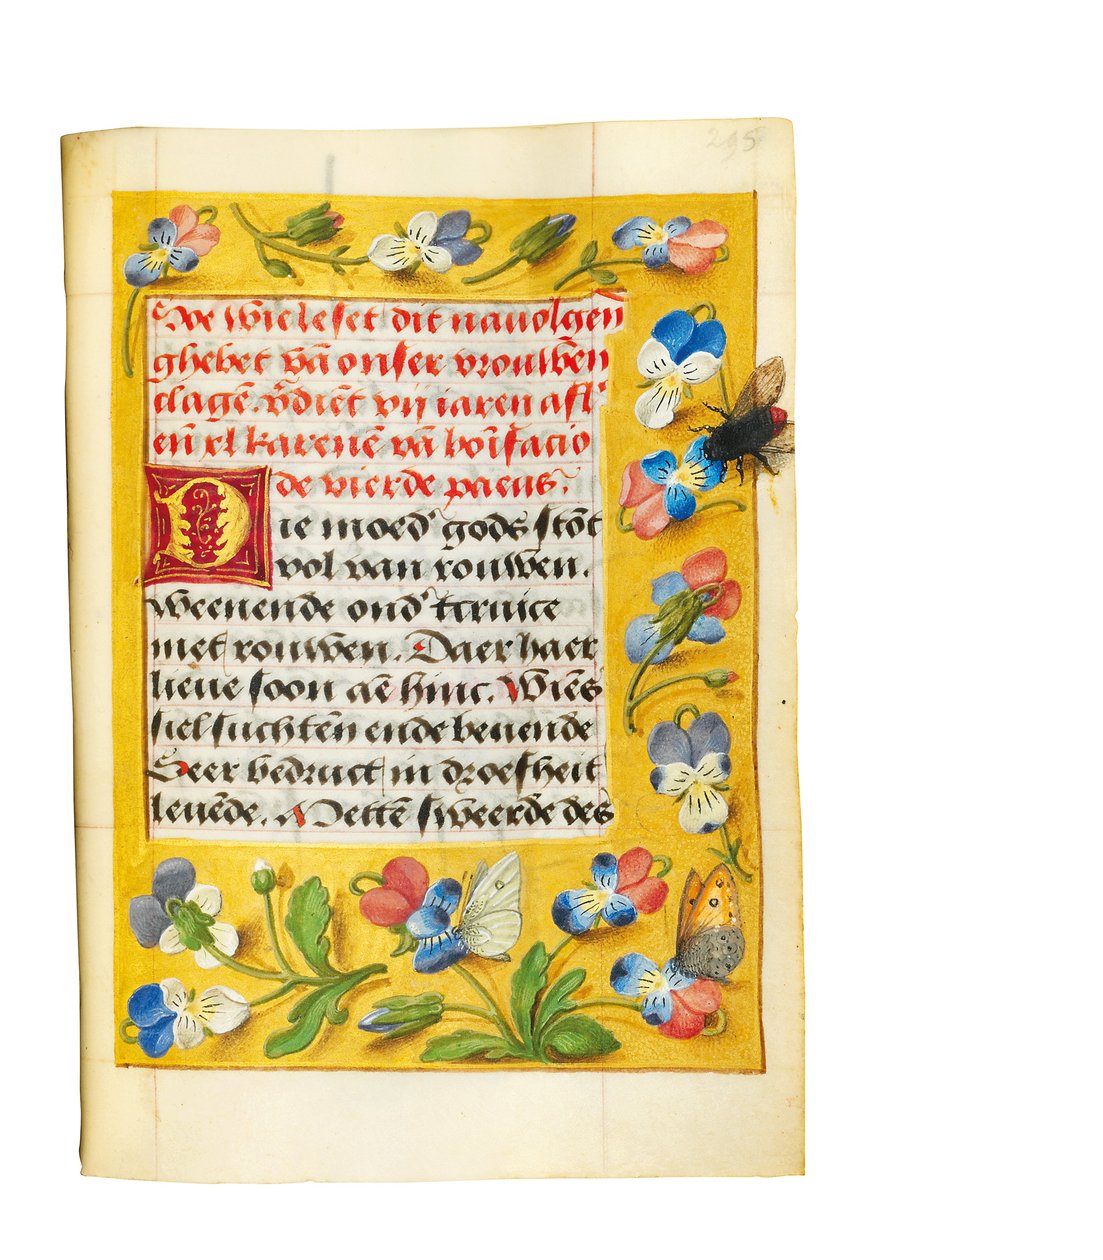 295
Soe wie leset dit nauolgen̄
ghebet vā onser vrouwēn
clage. v̄diēt vij iaren afl'
en̄ xl karenē vā bonifacio
de vierde paeus.
Die moed' gods stōt
vol van rouwen.
weenende ond' tcruice
met rouwen. Daer haer
lieue soon aē hinc. Wiēs
siel suchtēn ende beuende
Seer bedruct in droefheit
leuēde. Mettē sweerde des